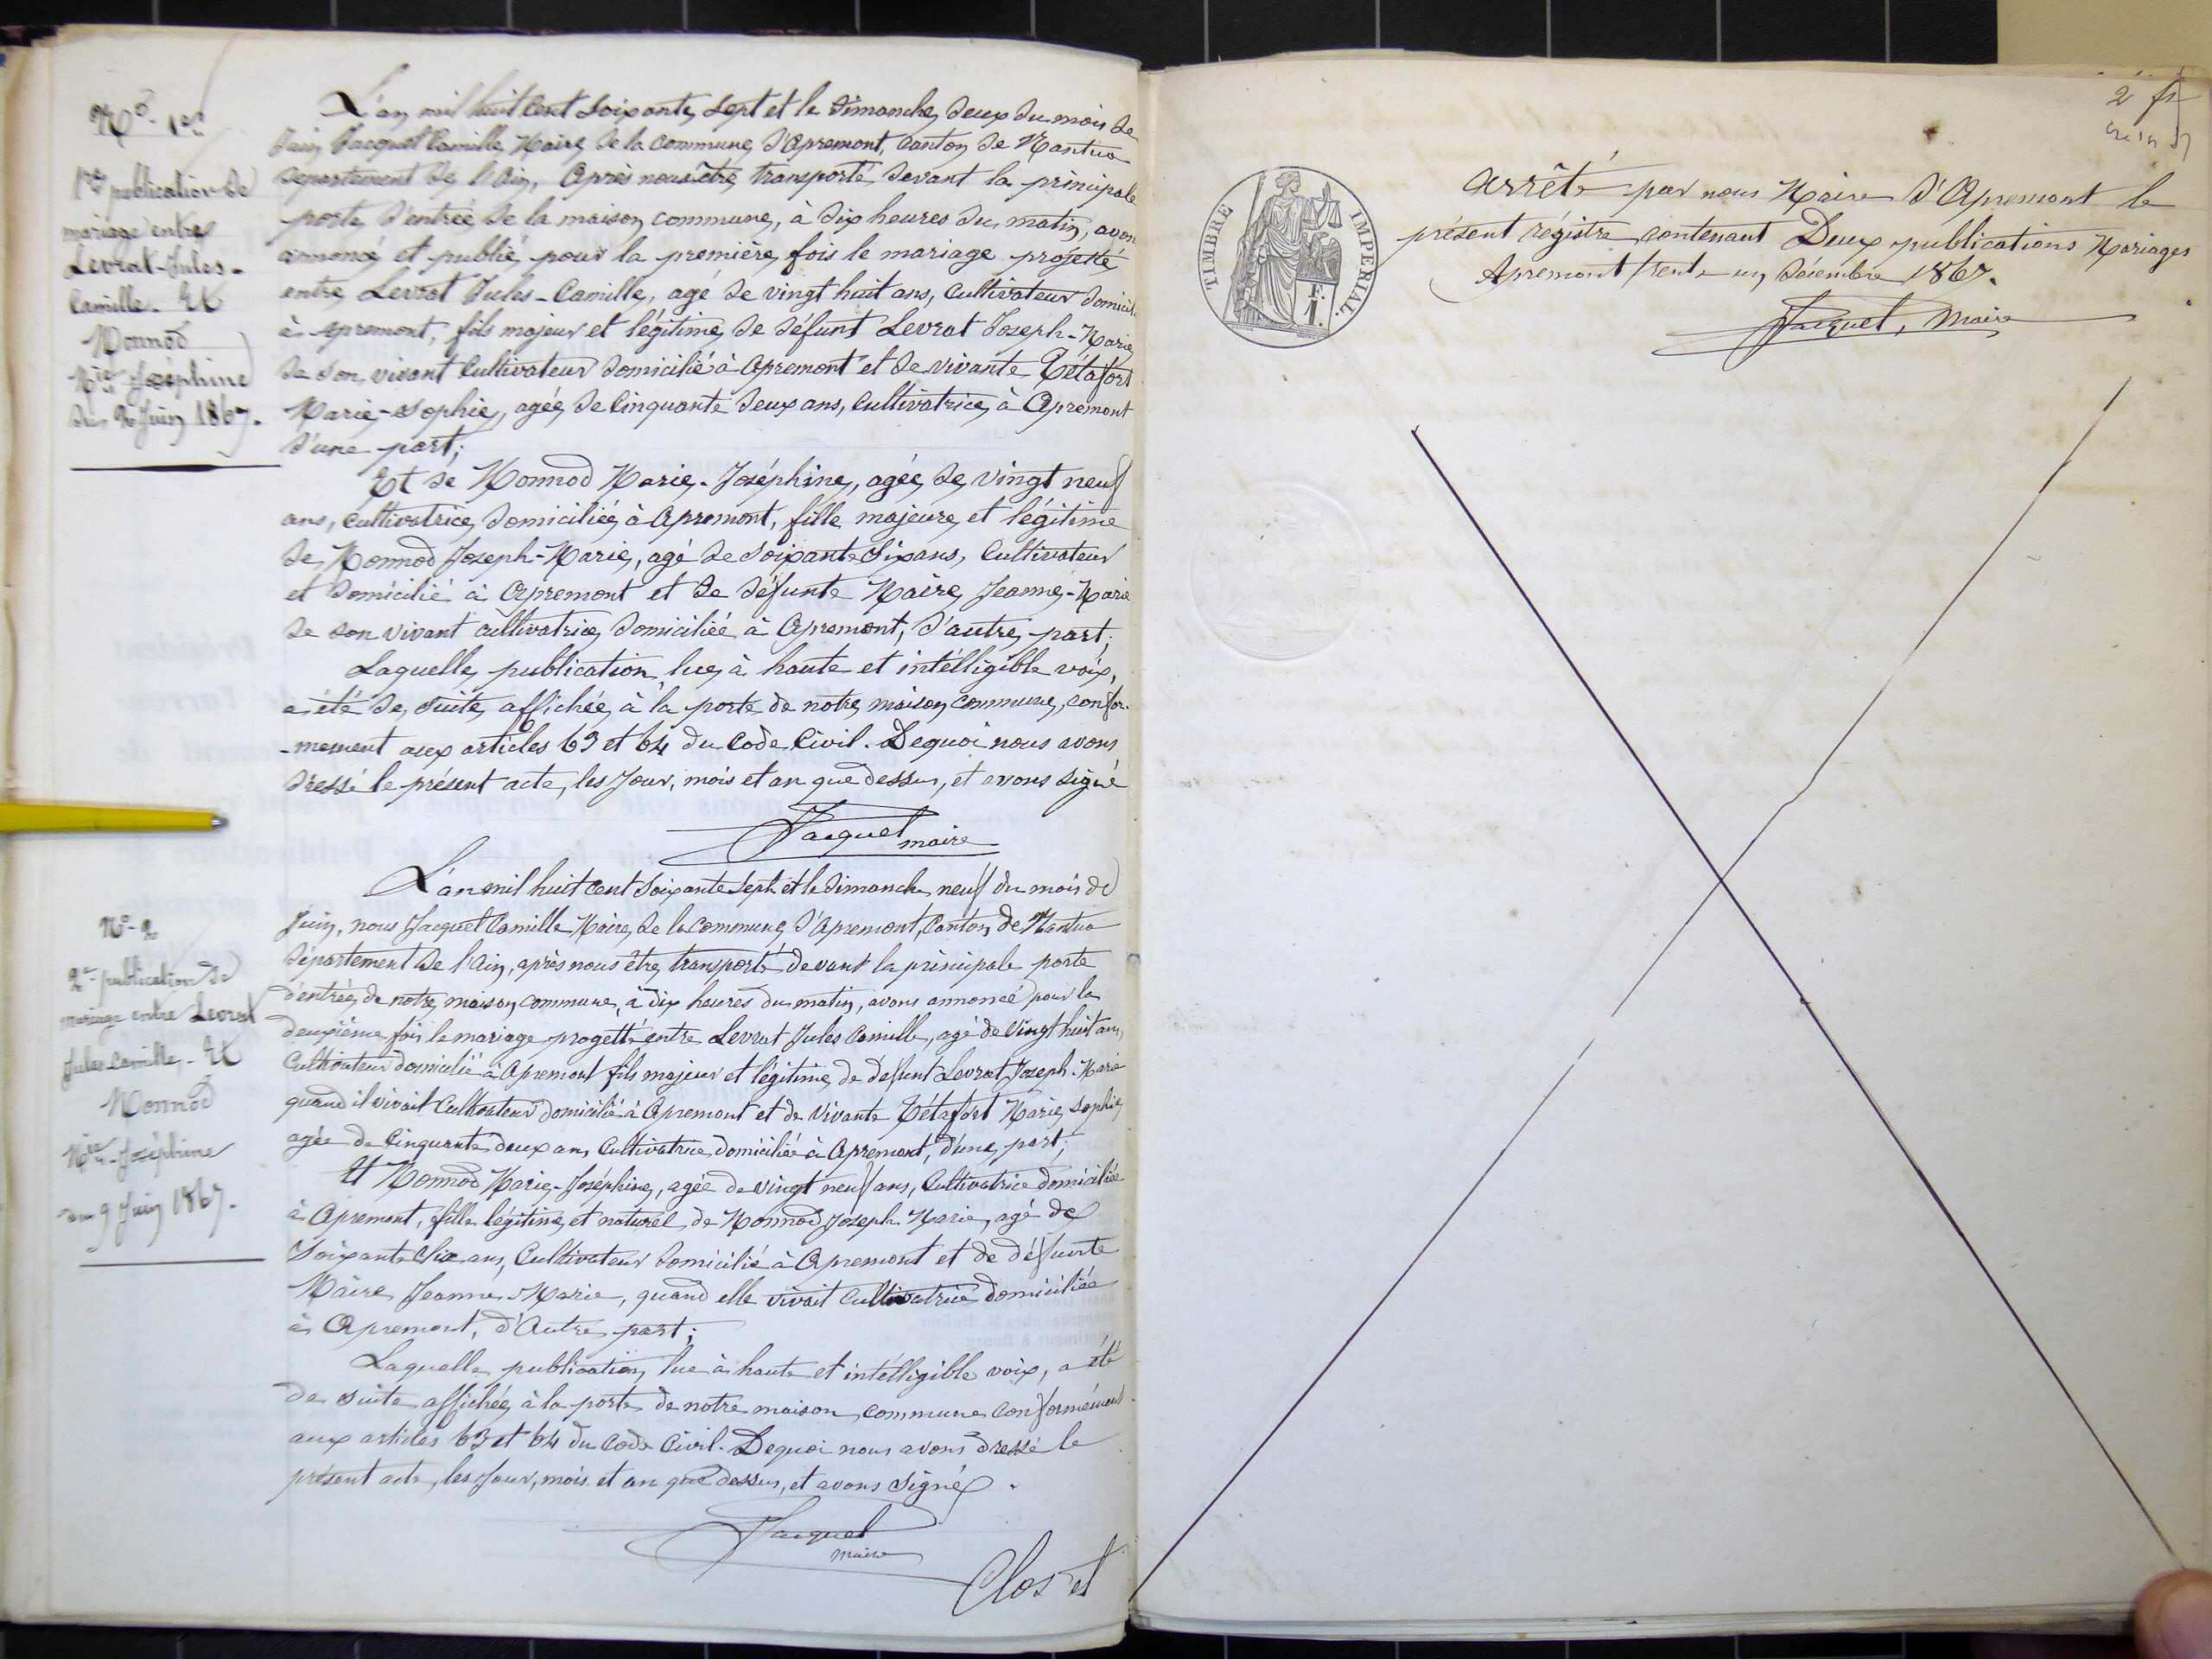 No 1er
1ère publication de
mariage entre
Levrat Jules-
Camille. Et
Monnod
Mie Joséphine
du 2 Juin 1867.
L'an mil huit cent soixante sept et le Dimanche deux du mois de
Juin Jacquet Camille Maire de la commune d'Apremont, canton de Nantua
département de l'Ain, Après nous être transporté devant la principale
porte d'entrée de la maison commune, à dix heures du matin, avons
annoncé et publié pour la première fois le mariage projeté
entre Levrat Jules-Camille, agé de vingt huit ans, Cultivateur domicilié
à Apremont, fils majeur et légitime de défunt Levrat Joseph-Marie
de son vivant Cultivateur domicilié à Apremont et de vivante Tétafort
Marie-Sophie, agée de Cinquante deux ans, Cultivatrice à Apremont
d'une part;
Et de Monnod Marie-Joséphine, agée de vingt neuf
ans, cultivatrice domiciliée à Apremont, fille majeure et légitime
de Monnod Joseph-Marie, agé de soixante six ans, Cultivateur
et domicilié à Apremont et de défunte Maire Jeanne-Marie
de son vivant cultivatrice domiciliée à Apremont, d'autre part;
Laquelle publication, lue à haute et intélligible voix,
a été de suite affichée à la porte de notre maison commune, confor-
-mement aux articles 63 et 64 du Code Civil. Dequoi nous avons
dressé le présent acte, les Jour, mois et an que dessus, et avons signé
Jacquet
maire
No-2
2e publication de
mariage entre Levrat
Jules Camille. Et
Monnod
Mie-Joséphine
du 9 Juin 1867.
L'an mil huit cent soixante sept et le Dimanche neuf du mois de
Juin, nous Jacquet Camille Maire de la commune d'Apremont, Canton de Nantua
département de l'Ain, après nous être transporté devant la principale porte
d'entrée de notre maison commune, à dix heures du matin, avons annoncé pour la
deuxième fois le mariage progetté entre Levrat Jules Camille, agé de vingt huit ans,
Cultivateur domicilié à Apremont fils majeur et légitime de défunt Levrat Joseph-Marie
quand il vivait Cultivateur domicilié à Apremont et de vivante Tétafort Marie Sophie
agée de Cinquante deux ans, Cultivatrice domiciliée à Apremont, d'une part;
Et Monnod Marie-Joséphine, agée de vingt neuf ans, Cultivatrice domiciliée
à Apremont, fille légitime et naturel de Monnod Joseph Marie, agé de
Soixante Six ans, Cultivateur domicilié à Apremont et de défunte
Maire Jeanne Marie, quand elle vivait Cultivatrice domiciliée
à Apremont, d'Autre part;
Laquelle publication, lue à haute et intélligible voix, a été
de suite affichée à la porte de notre maison commune conformément
aux articles 63 et 64 du Code Civil. Dequoi nous avons dressé le
présent acte, les Jour, mois et an que dessus, et avons signé.
Jacquet
maire
Clos et
2 f
TIMBRE IMPÉRIAL
F.
1.
arrêté par nous Maire d'Apremont le
présent régistre contenant Deux publications Mariages
Apremont trente un décembre 1867.
Jacquet, Maire